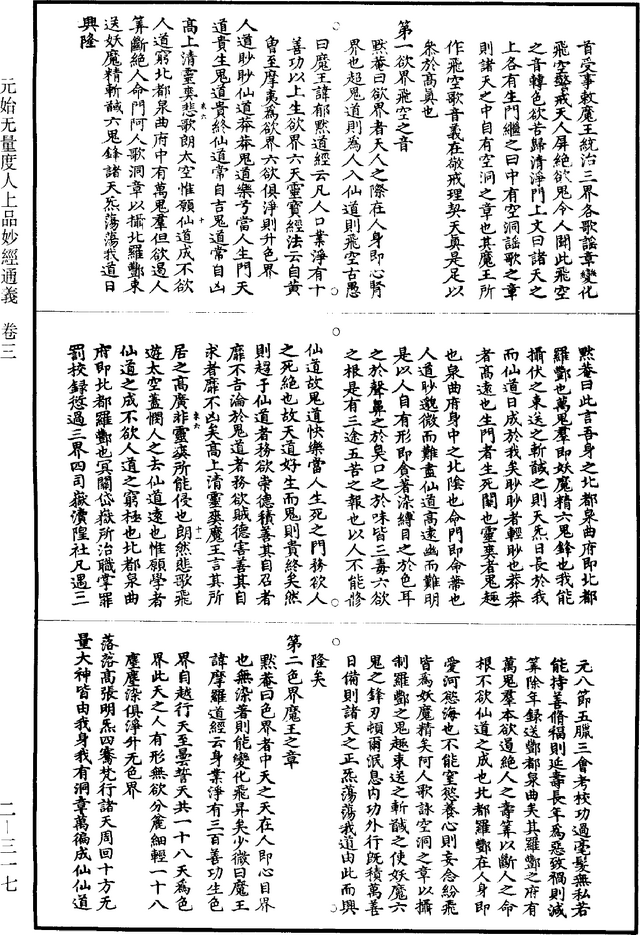 元始无量度人上品妙經通義 卷三
首受事敕魔王統治三界各歌謡章變化
飛空鑒戒天人屏絶欲鬼令人聞此飛空
之音轉色欲苦歸清淨門上文曰諸天之
上各有生門繼之曰中有空洞謡歌之章
則諸天之中自有空洞之章也其魔王所
作飛空歌音義在儆戒理契天真是足以
叅於髙真也
第一欲界飛空之音
黙菴曰欲界者天人之際在人身即心腎
界也超鬼道則為人入仙道則飛空古愚
曰魔王諱郁黙道經云凡人口業淨有十
善功以上生欲界六天靈寳經法云自黄
曽至摩夷為欲界六欲俱淨則升色界
人道眇眇仙道莽莽鬼道樂兮當人生門天
道貴生鬼道貴終仙道常自吉鬼道常自凶
高上清靈爽悲歌朗太空惟願仙道成不欲
人道窮北都泉曲府中有萬鬼羣但欲遏人
筭斷絶人命門阿人歌洞章以攝北羅酆束
送妖魔精斬馘六鬼鋒諸天炁蕩蕩我道日
興隆
黙菴曰此言吾身之北都泉曲府即北都
羅酆也萬鬼羣即妖魔精六鬼鋒也我能
攝伏之束送之斬馘之則天炁日長於我
而仙道日成於我矣眇眇者輕眇也莽莽
者髙遠也生門者生死關也靈爽者鬼趣
也泉曲府身中之北隂也命門即命蒂也
人道眇邈微而難盡仙道高遠幽而難明
是以人自有形即貪著染縛目之於色耳
之於聲鼻之於臭口之於味皆三毒六欲
之根是有三途五苦之報也以人不能修
仙道故鬼道快樂當人生死之門務欲人
之死絶也故天道好生而鬼則貴終矣然
則趣于仙道者務欲崇德積善其自召者
靡不吉淪於鬼道者務欲賊德害善其自
求者靡不凶矣高上清靈爽魔王言其所
居之髙廣非靈爽所能侵也朗然悲歌飛
遊太空蓋憫人之去仙道遠也惟願學者
仙道之成不欲人道之窮極也北都泉曲
府即北都羅酆也㝠關岱嶽所治職掌罪
罰校録愆過三界四司嶽瀆隍社凡遇三
元八節五臘三會考校功過毫髮無私若
能持善脩福則延壽長年為惡致禍則減
筭除年録送酆都泉曲矣其羅酆之府有
萬鬼羣本欲遏絶人之壽筭以斷人之命
根不欲仙道之成也北都羅酆在人身即
愛河慾海也不能窒慾養心則妄念紛飛
皆為妖魔精矣阿人歌詠空洞之章以攝
制羅酆之鬼趣束送之斬馘之使妖魔六
鬼之鋒刃頓爾泯息内功外行既積萬善
日備則諸天之正炁蕩蕩我道由此而興
隆矣
第二色界魔王之章
黙菴曰色界者中天之天在人即心目界
也無染著則能變化飛昇矣少微曰魔王
諱摩羅道經云身業淨有三百善功生色
界自越行天至曇誓天共一十八天為色
界此天之人有形無欲分麄細輕一十八
塵塵染俱淨升无色界
落落高張明炁四騫梵行諸天周回十方无
量大神皆由我身我有洞章萬徧成仙仙道
二—三一七